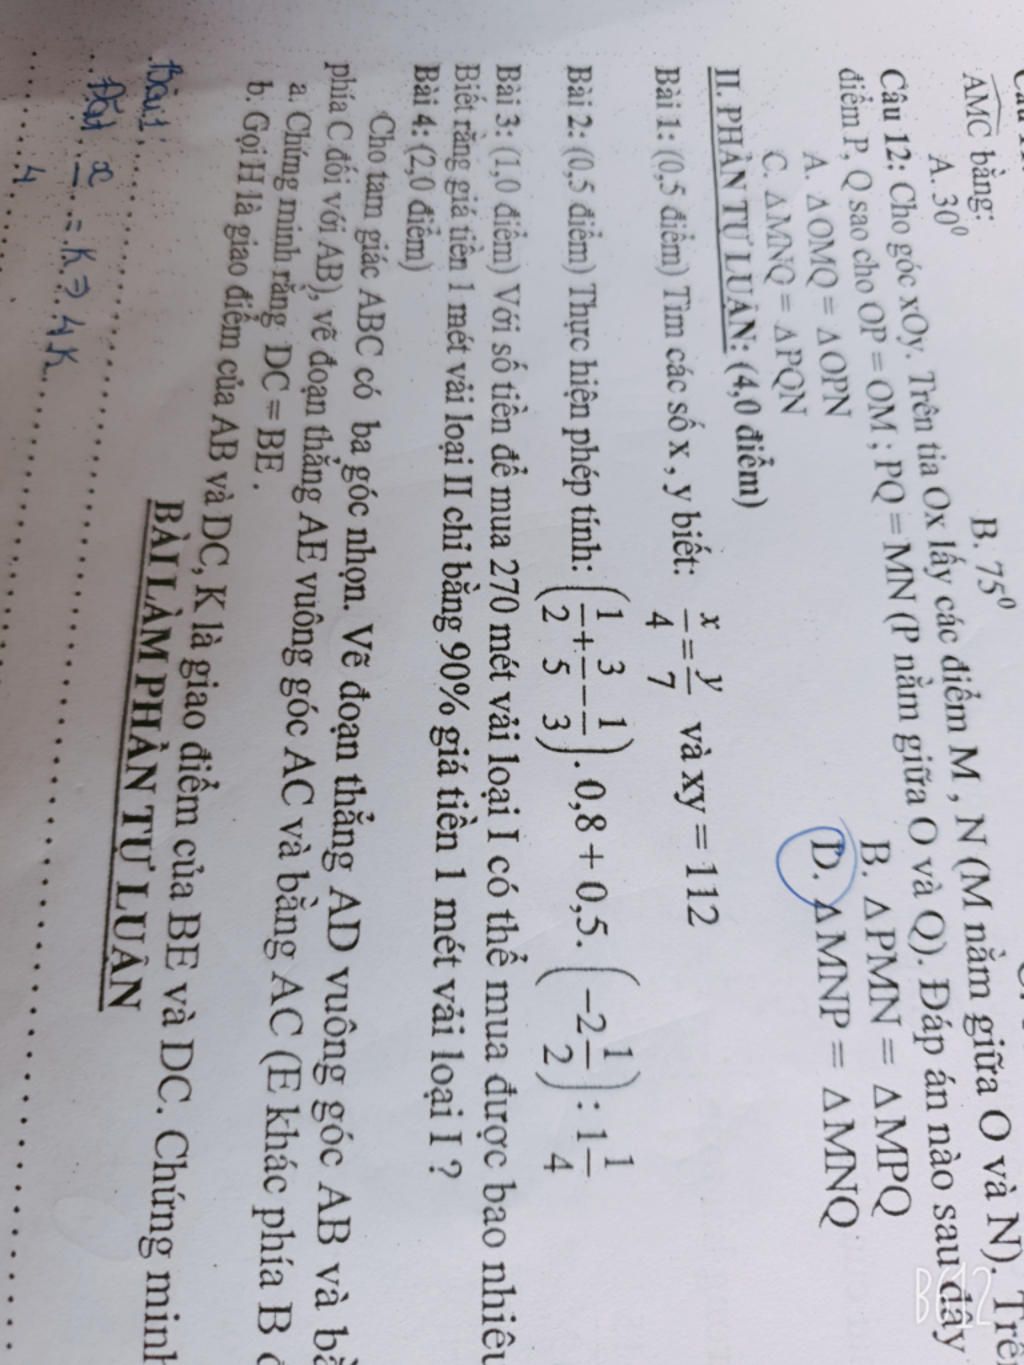 AMC bằng:
A. 30⁰ B. 75⁰
Câu 12: Cho góc xOy. Trên tia Ox lấy các điểm M , N (M nằm giữa O và N). Trên
điểm P, Q sao cho OP = OM ; PQ = MN (P nằm giữa O và Q). Đáp án nào sau đây
A. ΔOMQ = ΔOPN B. ΔPMN = ΔMPQ
C. ΔMNQ = ΔPQN D. ΔMNP = ΔMNQ
II. PHẦN TỰ LUẬN: (4,0 điểm)
Bài 1: (0,5 điểm) Tìm các số x , y biết: x/4 = y/7 và xy = 112
Bài 2: (0,5 điểm) Thực hiện phép tính: (1/2 + 3/5 - 1/3) . 0,8 + 0,5. (-2 1/2) : 1 1/4
Bài 3: (1,0 điểm) Với số tiền để mua 270 mét vải loại I có thể mua được bao nhiêu
Biết rằng giá tiền 1 mét vải loại II chỉ bằng 90% giá tiền 1 mét vải loại I ?
Bài 4: (2,0 điểm)
Cho tam giác ABC có ba góc nhọn. Vẽ đoạn thẳng AD vuông góc AB và
phía C đối với AB), vẽ đoạn thẳng AE vuông góc AC và bằng AC (E khác phía B
a. Chứng minh rằng DC = BE .
b. Gọi H là giao điểm của AB và DC, K là giao điểm của BE và DC. Chứng minh
BÀI LÀM PHẦN TỰ LUẬN
Bài 1:
Đặt x/4 = K ⇒ 4K
BC12